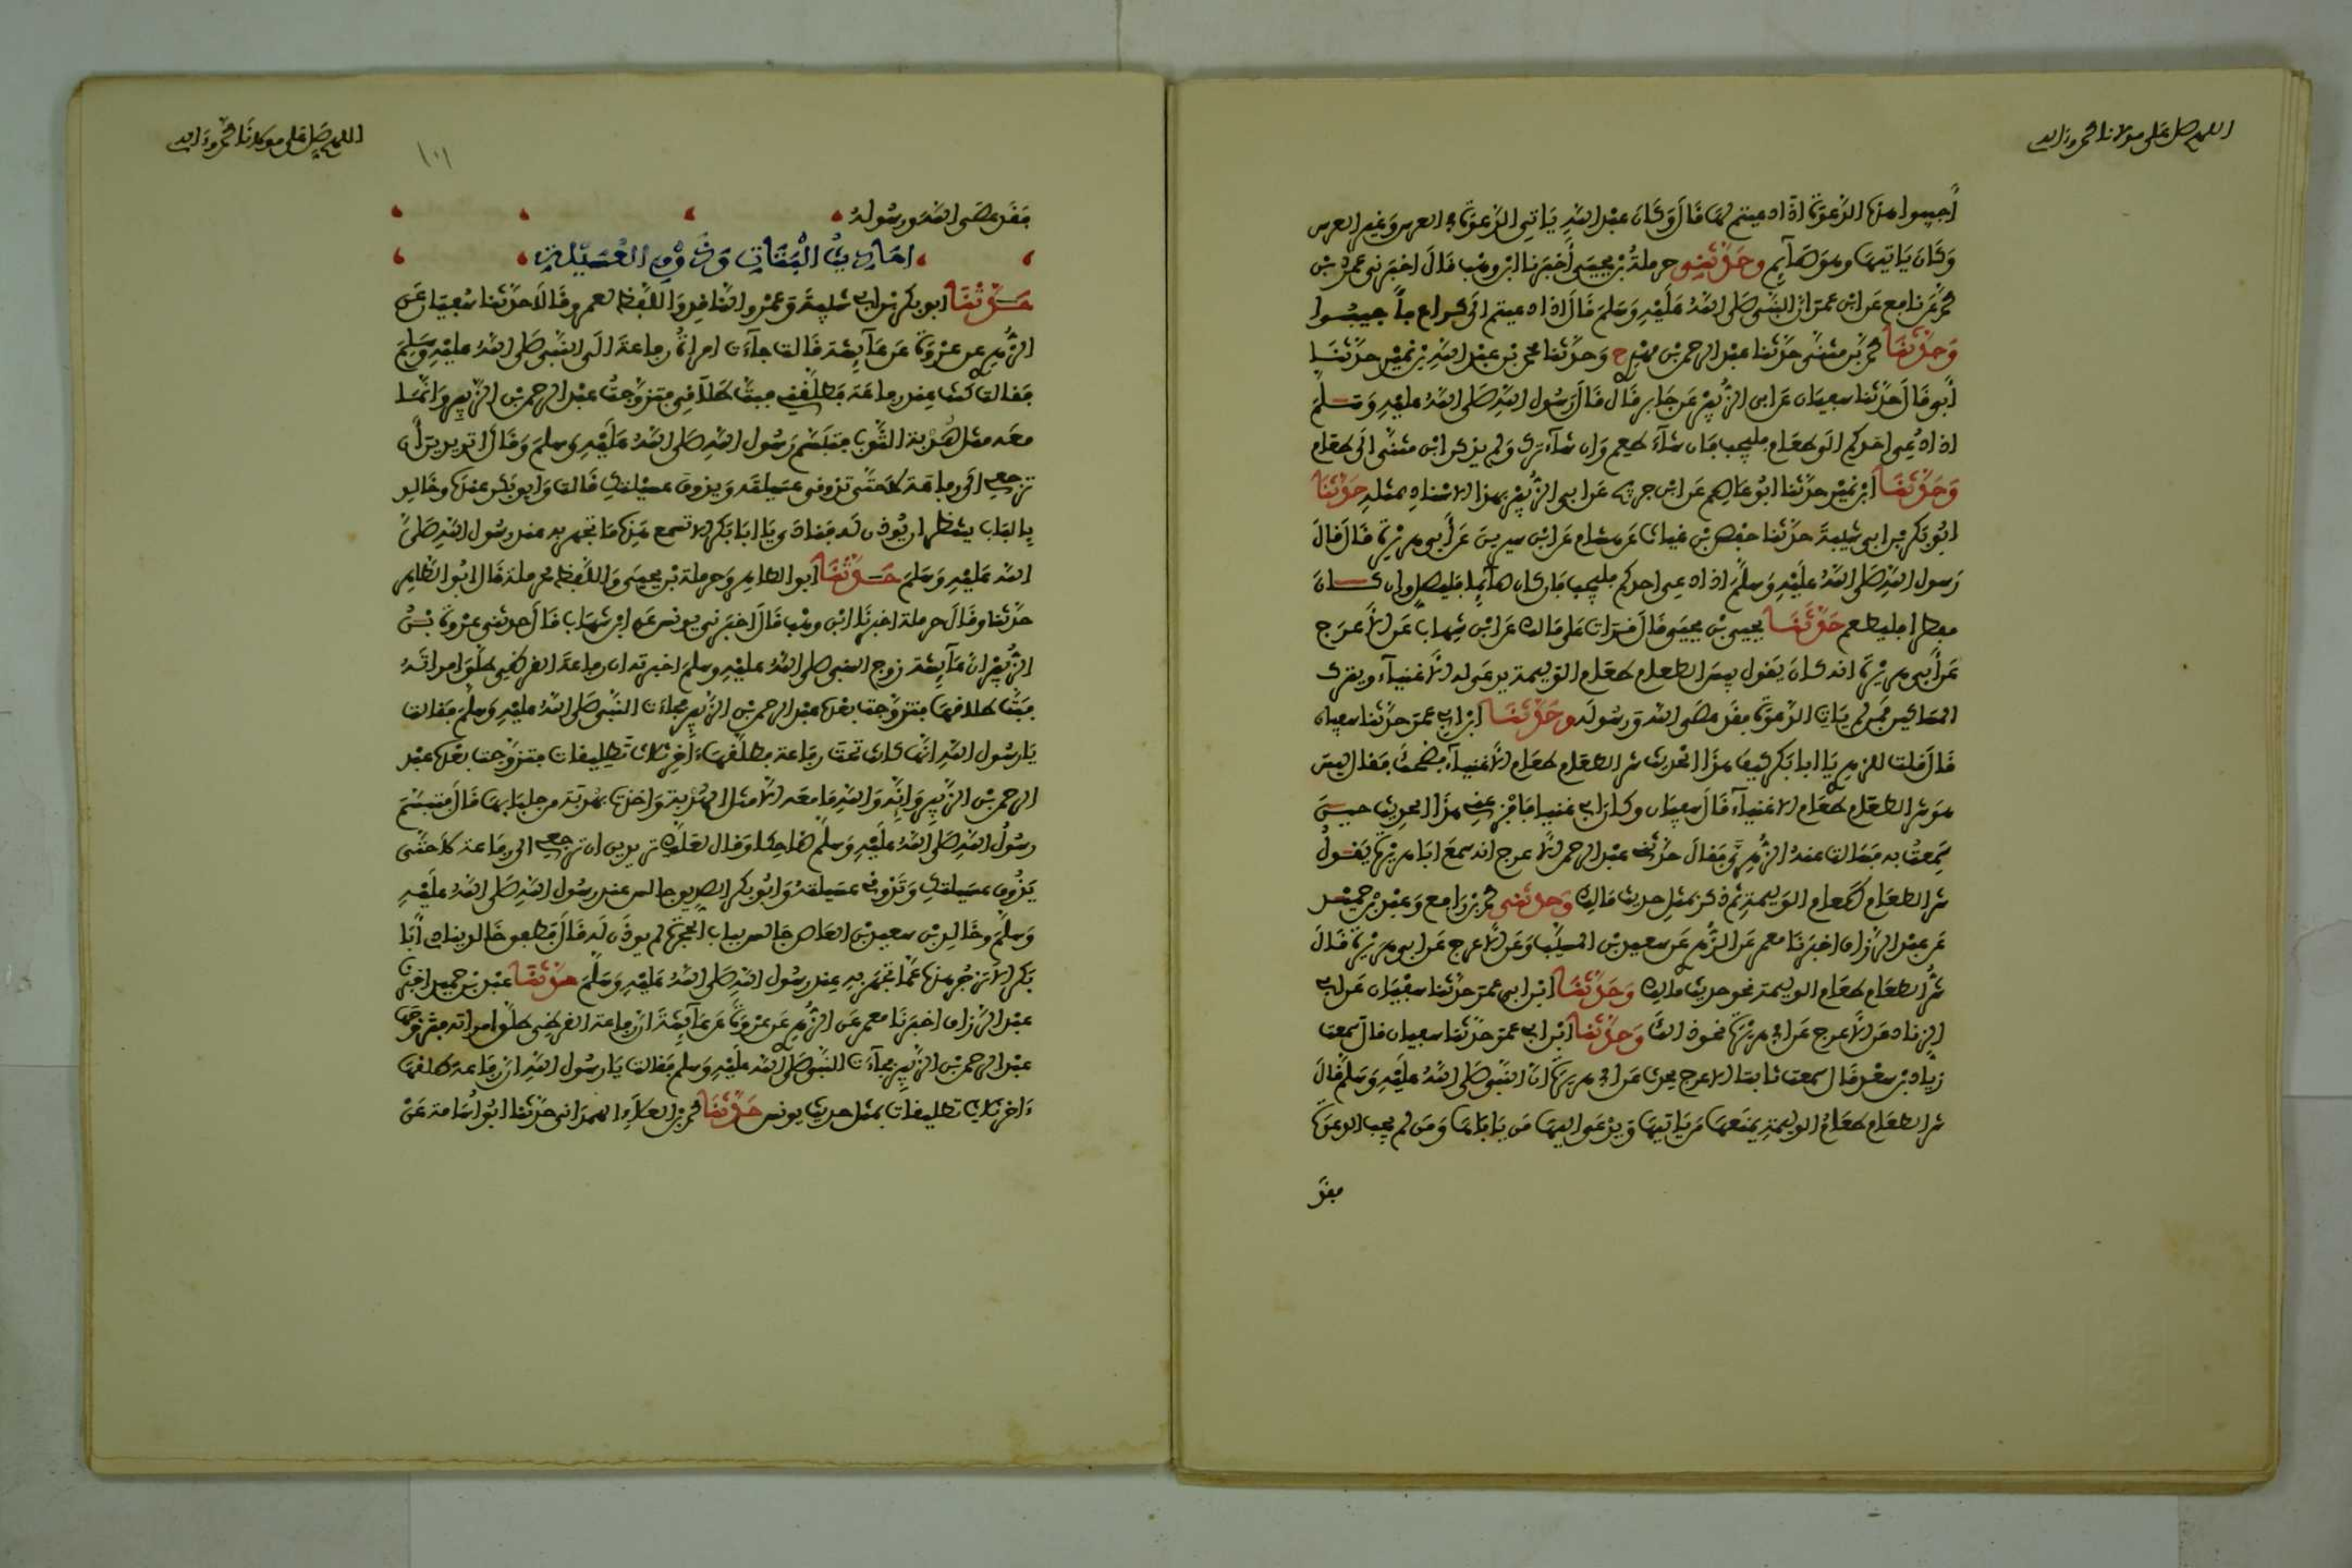 اللهم صل على مولانا محمد وءاله
أجيبوا هذه الدعوة اذا دعيتم لها قال وكان عبد الله ياتى الدعوة فى العرس وغير العرس
وكان ياتيها وهو صآيم وحدثنى حرملة بن يحيى أخبرنا ابن وهب قال اخبرنى عمر بن
محمد عن نافع عن ابن عمر ان النبى صلى الله عليه وسلم قال اذا دعيتم الى كراع فأجيبوا
وحدثنا محمد بن مثنى حدثنا عبد الرحمن بن مهدى ح وحدثنا محمد بن عبد الله بن نمير حدثنا
أبى قالا حدثنا سفيان عن ابى الزبير عن جابر قال قال رسول الله صلى الله عليه وسلم
اذا دعى احدكم الى طعام فليجب فان شآء طعم وان شآء ترك ولم يذكر ابن مثنى الى طعام
وحدثنا ابن نمير حدثنا ابو عاصم عن ابن جريج عن ابى الزبير بهذا الاسناد بمثله حدثنا
ابو بكر بن ابى شيبة حدثنا حفص بن غياث عن هشام عن ابن سيرين عن أبى هريرة قال قال
رسول الله صلى الله عليه وسلم اذا دعى احدكم فليجب فان كان صآيما فليصل وان كان
مفطرا فليطعم حدثنا يحيى بن يحيى قال قرات على مالك عن ابن شهاب عن الاعرج
عن أبى هريرة انه كان يقول بيس الطعام طعام الوليمة يدعى له الاغنيآء ويترك
المساكين فمن لم يات الدعوة فقد عصى الله ورسوله وحدثنا ابن ابى عمر حدثنا سفيان
قال قلت للزهرى يا ابا بكر كيف هذا الحديث شر الطعام طعام الاغنيآء فضحك فقال ليس
هو شر الطعام طعام الاغنيآء قال سفيان وكان ابى غنيا فافزعنى هذا الحديث حين
سمعت به فسالت عنه الزهرى فقال حدثنى عبد الرحمن الاعرج انه سمع ابا هريرة يقول
شر الطعام طعام الوليمة ثم ذكر بمثل حديث مالك وحدثنى محمد بن رافع وعبد بن حميد
عن عبد الرزاق اخبرنا معمر عن الزهرى عن سعيد بن المسيب وعن الاعرج عن ابى هريرة قال
شر الطعام طعام الوليمة نحو حديث مالك وحدثنا ابن ابى عمر حدثنا سفيان عن ابى
الزناد عن الاعرج عن ابى هريرة نحو ذلك وحدثنا ابن ابى عمر حدثنا سفيان قال سمعت
زياد بن سعد قال سمعت ثابتا الاعرج يحدث عن ابى هريرة ان النبى صلى الله عليه وسلم قال
شر الطعام طعام الوليمة يمنعها من ياتيها ويدعى اليها من ياباها ومن لم يجب الدعوة
فقد
اللهم صل على مولانا محمد وءاله
١٠١
فقد عصى الله ورسوله
احاديث البتات وذوق العسيلة
حدثنا ابو بكر بن ابى شيبة وعمرو الناقد واللفظ لعمرو قالا حدثنا سفيان عن
الزهرى عن عروة عن عآيشة قالت جآءت امراة رفاعة الى النبى صلى الله عليه وسلم
فقالت كنت عند رفاعة فطلقنى فبت طلاقى فتزوجت عبد الرحمن بن الزبير وانما
معه مثل هدبة الثوب فتبسم رسول الله صلى الله عليه وسلم وقال اتريدين أن
ترجعى الى رفاعة لا حتى تذوقى عسيلته ويذوق عسيلتك قالت وابو بكر عنده وخالد
بالباب ينتظر ان يوذن له فنادى يا ابا بكر الا تسمع هذه ما تجهر به عند رسول الله صلى
الله عليه وسلم حدثنا ابو الطاهر وحرملة بن يحيى واللفظ لحرملة قال ابو الطاهر
حدثنا وقال حرملة اخبرنا ابن وهب قال اخبرنى يونس عن ابن شهاب قال حدثنى عروة بن
الزبير ان عآيشة زوج النبى صلى الله عليه وسلم اخبرته ان رفاعة القرظى طلق امراته
فبت طلاقها فتزوجت بعده عبد الرحمن بن الزبير فجاءت النبى صلى الله عليه وسلم فقالت
يا رسول الله انها كانت تحت رفاعة فطلقها ءاخر ثلاث تطليقات فتزوجت بعده عبد
الرحمن بن الزبير وانه والله ما معه الا مثل الهدبة واخذت بهدبة من جلبابها قال فتبسم
رسول الله صلى الله عليه وسلم ضاحكا وقال لعلك تريدين ان ترجعى الى رفاعة لا حتى
يذوق عسيلتك وتذوقى عسيلته وابو بكر الصديق جالس عند رسول الله صلى الله عليه
وسلم وخالد بن سعيد بن العاص جالس بباب الحجرة لم يوذن له قال فطفق خالد ينادى أبا
بكر الا تزجر هذه عما تجهر به عند رسول الله صلى الله عليه وسلم حدثنا عبد بن حميد اخبرنا
عبد الرزاق اخبرنا معمر عن الزهرى عن عروة عن عآيشة ان رفاعة القرظى طلق امراته فتزوجها
عبد الرحمن بن الزبير فجآءت النبى صلى الله عليه وسلم فقالت يا رسول الله ان رفاعة طلقها
ءاخر ثلاث تطليقات بمثل حديث يونس حدثنا محمد بن العلاء الهمدانى حدثنا ابو أسامة عن